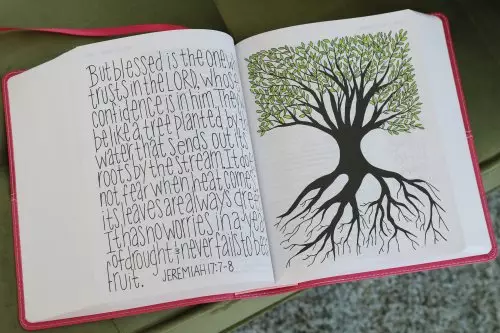 But blessed is the one w
trusts in the LORD, whos
confidence is in him. The
be like a tree planted by
water that sends out it
roots by the stream. It do
not fear when heat comes
its leaves are always gree
It has no worries in a yea
of drought & never fails to bea
fruit. JEREMIAH 17:7-8